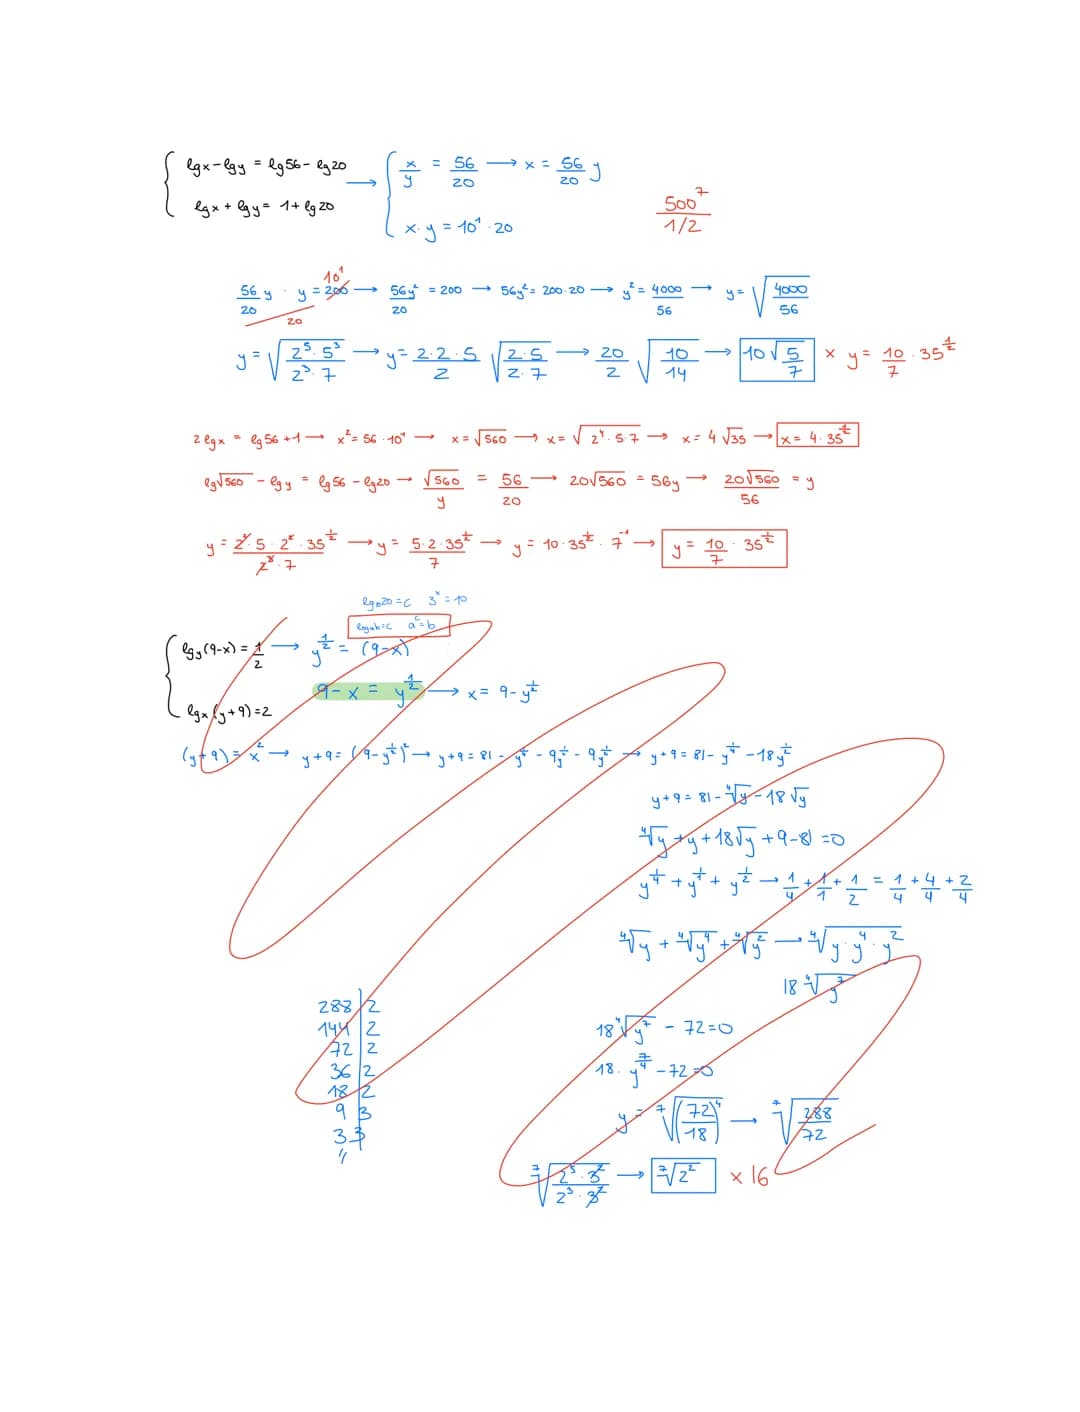 { lgx - lgy = lg56 - lg20 → { x/y = 56/20 → x = 56/20 y
lgx + lgy = 1 + lg20
x · y = 10¹ · 20
500⁷/1/2
10¹
56/20 y · y = 200 → 56y²/20 = 200 → 56y² = 200·20 → y² = 4000/56 → y = √4000/56
20
y = √2⁵·5³/2³·7 → y = 2·2·5/2 √2·5/2·7 → 20/2 √10/14 → 10√5/7 × y = 10/7 · 35^½
2lgx = lg56 + 1 → x² = 56·10¹ → x = √560 → x = √2⁴·5·7 → x = 4√35 → x = 4·35^½
lg√560 - lgy = lg56 - lg20 → √560/y = 56/20 → 20√560 = 56y → 20√560/56 = y
y = 2²·5·2²·35^½/2³·7 → y = 5·2·35^½/7 → y = 10·35^½·7⁻¹ → y = 10/7 · 35^½
3ˣ = 10
logab=c aᶜ=b
{ lgy(9-x) = 1/2 → y^½ = (9-x)
9 - x = y^½ → x = 9 - y^½
lgx(y+9) = 2
(y+9) = x² → y+9 = (9-y^½)² → y+9 = 81 - y^¼ - 9y^½ - 9y^½ → y+9 = 81 - y^¼ - 18y^½
y+9 = 81 - ⁴√y - 18√y
⁴√y + y + 18√y + 9 - 81 = 0
y^¼ + y^1/1 + y^½ → 1/4 + 1/1 + 1/2 = 1/4 + 4/4 + 2/4
⁴√y + ⁴√y⁴ + ⁴√y² → ⁴√y·y⁴·y²
18 ⁴√y⁷
288 | 2
144 | 2
72 | 2
36 | 2
18 | 2
9 | 3
3 3
18 ⁴√y⁷ - 72 = 0
18 · y^7/4 - 72 = 0
y = ⁷√(72/18)⁴ → ⁷√288/72
⁷√2⁵·3²/2³·3² → ⁷√2² × 16